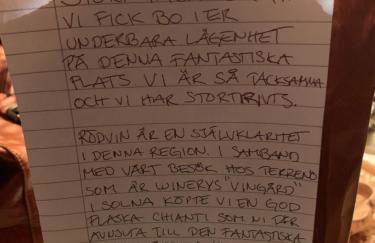 VI FICK BO I ER
UNDERBARA LÄGENHET
PÅ DENNA FANTASTISKA
PLATS VI ÄR SÅ TACKSAMMA
OCH VI HAR STORTRIVTS.
RÖDVIN ÄR EN SJÄLVKLARHET
I DENNA REGION. I SAMBAND
MED VÅRT BESÖK HOS TERRENO
SOM ÄR WINERYS "VINGÅRD"
I SOLNA KÖPTE VI EN GOD
FLASKA CHIANTI SOM NI KAN
AVNJUTA TILL DEN FANTASTISKA